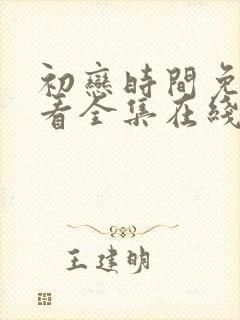 初戀時間免
看全集在綫
王建明